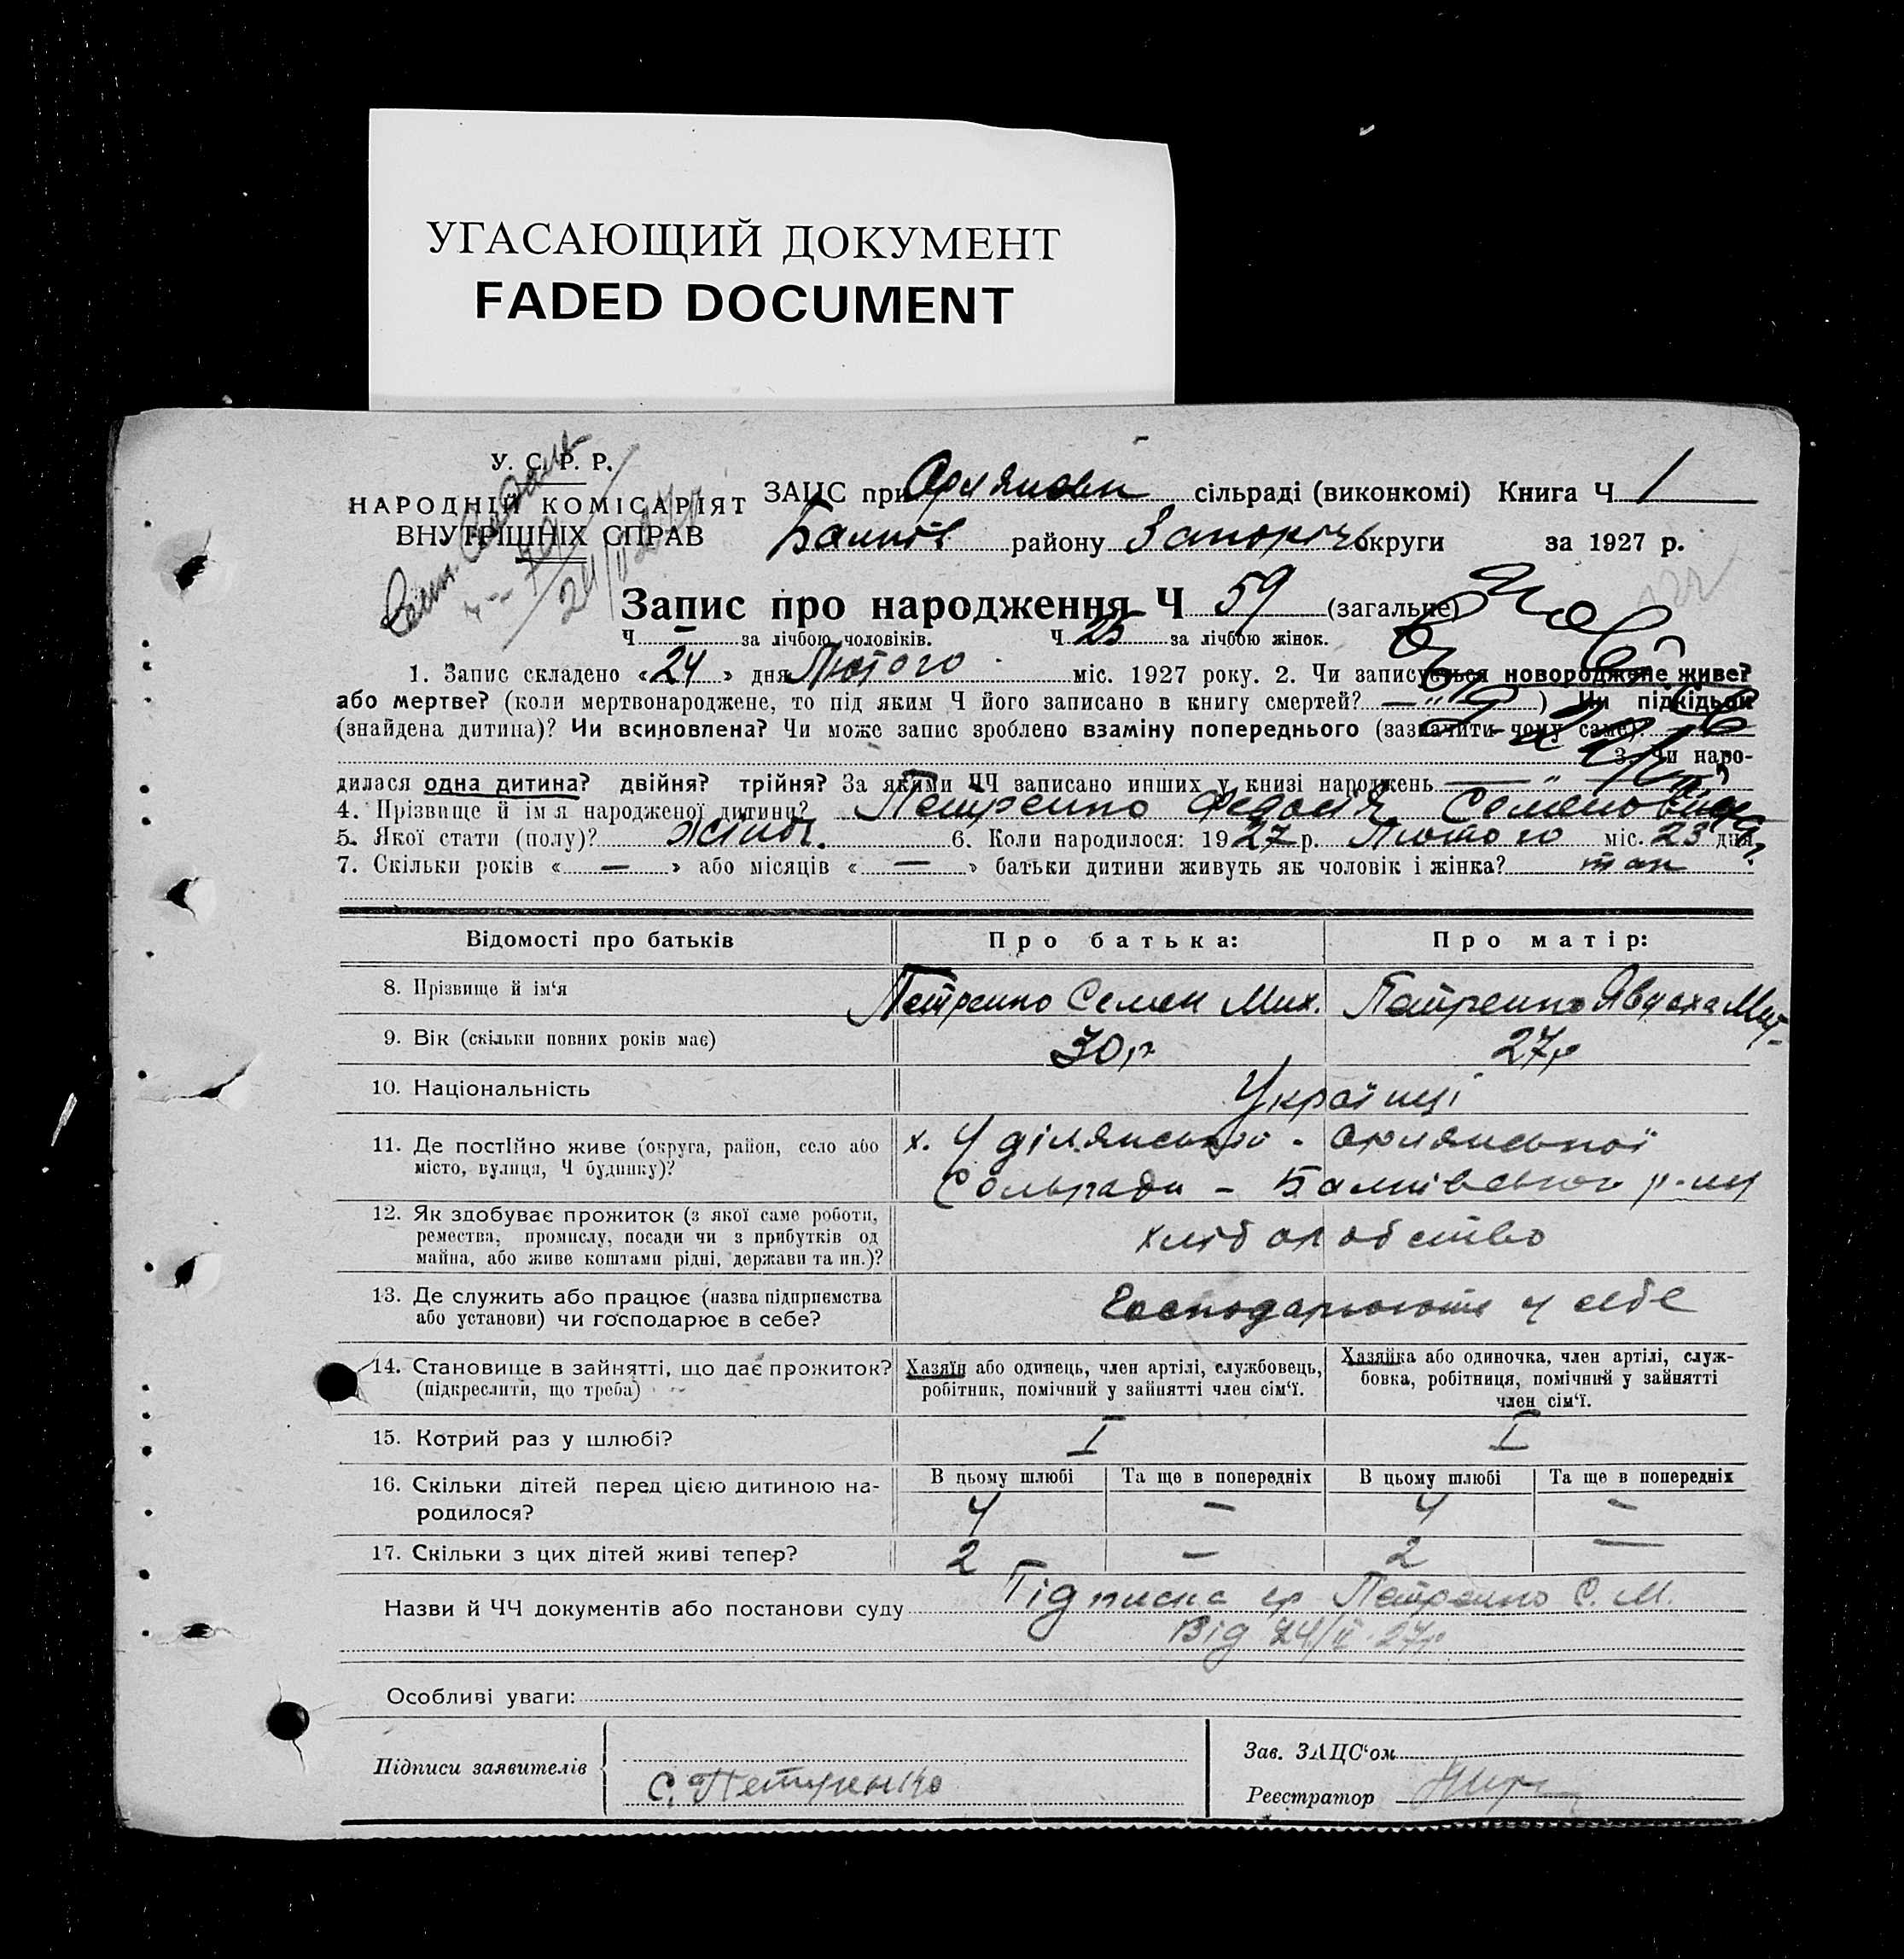 УГАСАЮЩИЙ ДОКУМЕНТ
FADED DOCUMENT
У. С. Р. Р.
НАРОДНІЙ КОМІСАРІЯТ
ВНУТРІШНІХ СПРАВ
24/II 27
ЗАЦС при сільраді (виконкомі) Книга Ч 1
Балків району Запоріз округи за 1927 р.
Запис про народження Ч 59 (загальне)
Ч — за лічбою чоловіків. Ч 25 за лічбою жінок.
1. Запис складено «24» дня Лютого міс. 1927 року. 2. Чи записується новороджене живе?
або мертве? (коли мертвонароджене, то під яким Ч його записано в книгу смертей? —„— ) Чи підкідьок
(знайдена дитина)? Чи всиновлена? Чи може запис зроблено взаміну попереднього (зазначити чому саме)?
3. Чи наро-
дилася одна дитина? двійня? трійня? За якими ЧЧ записано инших у книзі народжень — „ —
4. Прізвище й ім'я народженої дитини? Петренко Федосія Семеновна
5. Якої стати (полу)? жіноч. 6. Коли народилося: 1927 р. Лютого міс. 23 дня.
7. Скільки років «—» або місяців «—» батьки дитини живуть як чоловік і жінка? так
Відомості про батьків Про батька: Про матір:
8. Прізвище й ім'я Петренко Семен Мих. Петренко Явдоха Мит-
9. Вік (скільки повних років має) 30 р 27 р
10. Національність Українці
11. Де постійно живе (округа, район, село або х. Уділянського - Орлянської
місто, вулиця, Ч будинку)? Сольради - Балківського р-ну
12. Як здобуває прожиток (з якої саме роботи,
ремества, промислу, посади чи з прибутків од хліборобство
майна, або живе коштами рідні, держави та ин.)?
13. Де служить або працює (назва підприємства Господарюють у себе
або установи) чи господарює в себе?
14. Становище в зайнятті, що дає прожиток? Хазяїн або одинець, член артілі, службовець, Хазяйка або одиночка, член артілі, служ-
(підкреслити, що треба) робітник, помічний у зайнятті член сім'ї. бовка, робітниця, помічний у зайнятті
член сім'ї.
15. Котрий раз у шлюбі? I I
16. Скільки дітей перед цією дитиною на- В цьому шлюбі Та ще в попередніх В цьому шлюбі Та ще в попередніх
родилося? 4 — 4 —
17. Скільки з цих дітей живі тепер? 2 — 2 —
Назви й ЧЧ документів або постанови суду Підписка гр Петренко С. М.
Від 24/II 27 р
Особливі уваги:
Підписи заявителів Зав. ЗАЦС'ом
С. Петренко Реєстратор